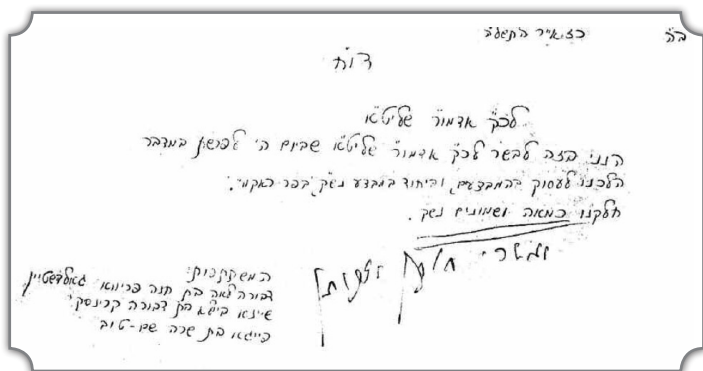 ב"ה
כז אייר ה'תשל"ה
דו"ח
לכ"ק אדמו"ר שליט"א
הנני בזה לבשר לכ"ק אדמו"ר שליט"א שביום ה' לפרשת במדבר
הלכנו לעסוק בהמבצעים, וביחוד במבצע נש"ק,
חלקנו כמאה ושמונים נש"ק.
המשתתפות:
דבורה לאה בת חנה פריווא גאלדשטיין
שיינא ביילא בת דבורה קרינסקי
פייגא בת שרה שם-טוב